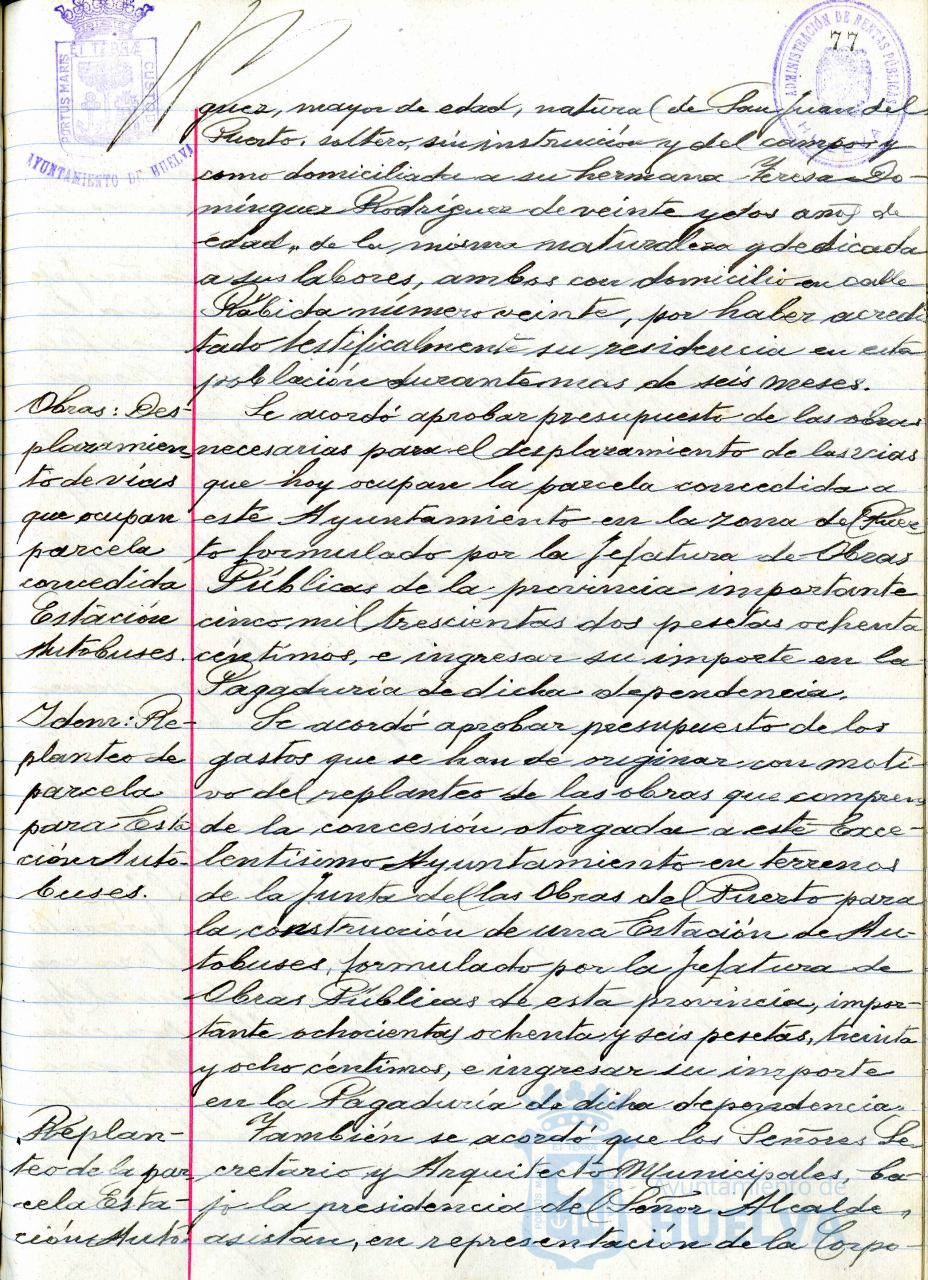 77
PORTUS MARIS ET TERRAE CUSTODIA
AYUNTAMIENTO DE HUELVA
ADMINISTRACIÓN DE RENTAS PÚBLICAS
HUELVA
guez, mayor de edad, natural de San Juan del
Puerto, soltero, sin instrucción y del campo; y
como domiciliada a su hermana Teresa Do-
mínguez Rodríguez de veinte y dos años de
edad, de la misma naturaleza y dedicada
a sus labores, ambos con domicilio en calle
Rábida número veinte, por haber acredi-
tado testificalmente su residencia en esta
población durante mas de seis meses.
Obras: Des-
plazamien-
to de vías
que ocupan
parcela
concedida
Estación
Autobuses.
Se acordó aprobar presupuesto de las obras
necesarias para el desplazamiento de las vías
que hoy ocupan la parcela concedida a
este Ayuntamiento en la zona del Puer-
to formulado por la Jefatura de Obras
Públicas de la provincia importante
cinco mil trescientas dos pesetas ochenta
céntimos, e ingresar su importe en la
Pagaduría de dicha dependencia.
Idem: Re-
planteo de
parcela
para Esta
ción Auto-
buses.
Se acordó aprobar presupuesto de los
gastos que se han de originar con moti-
vo del replanteo de las obras que compren-
de la concesión otorgada a este Exce-
lentísimo Ayuntamiento en terrenos
de la Junta de las Obras del Puerto para
la construcción de una Estación de Au-
tobuses, formulado por la Jefatura de
Obras Públicas de esta provincia, impor-
tante ochocientas ochenta y seis pesetas, treinta
y ocho céntimos, e ingresar su importe
en la Pagaduría de dicha dependencia.
Replan-
teo de la par-
cela Esta-
ción Auto-
También se acordó que los Señores Se-
cretario y Arquitecto Municipales, ba-
jo la presidencia del Señor Alcalde,
asistan, en representación de la Corpo-
Ayuntamiento de
HUELVA